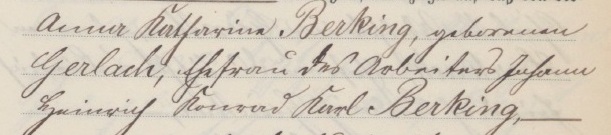 Anna Katharine Berking, geborenen
Gerlach, Ehefrau des Arbeiters Johann
Heinrich Konrad Karl Berking,